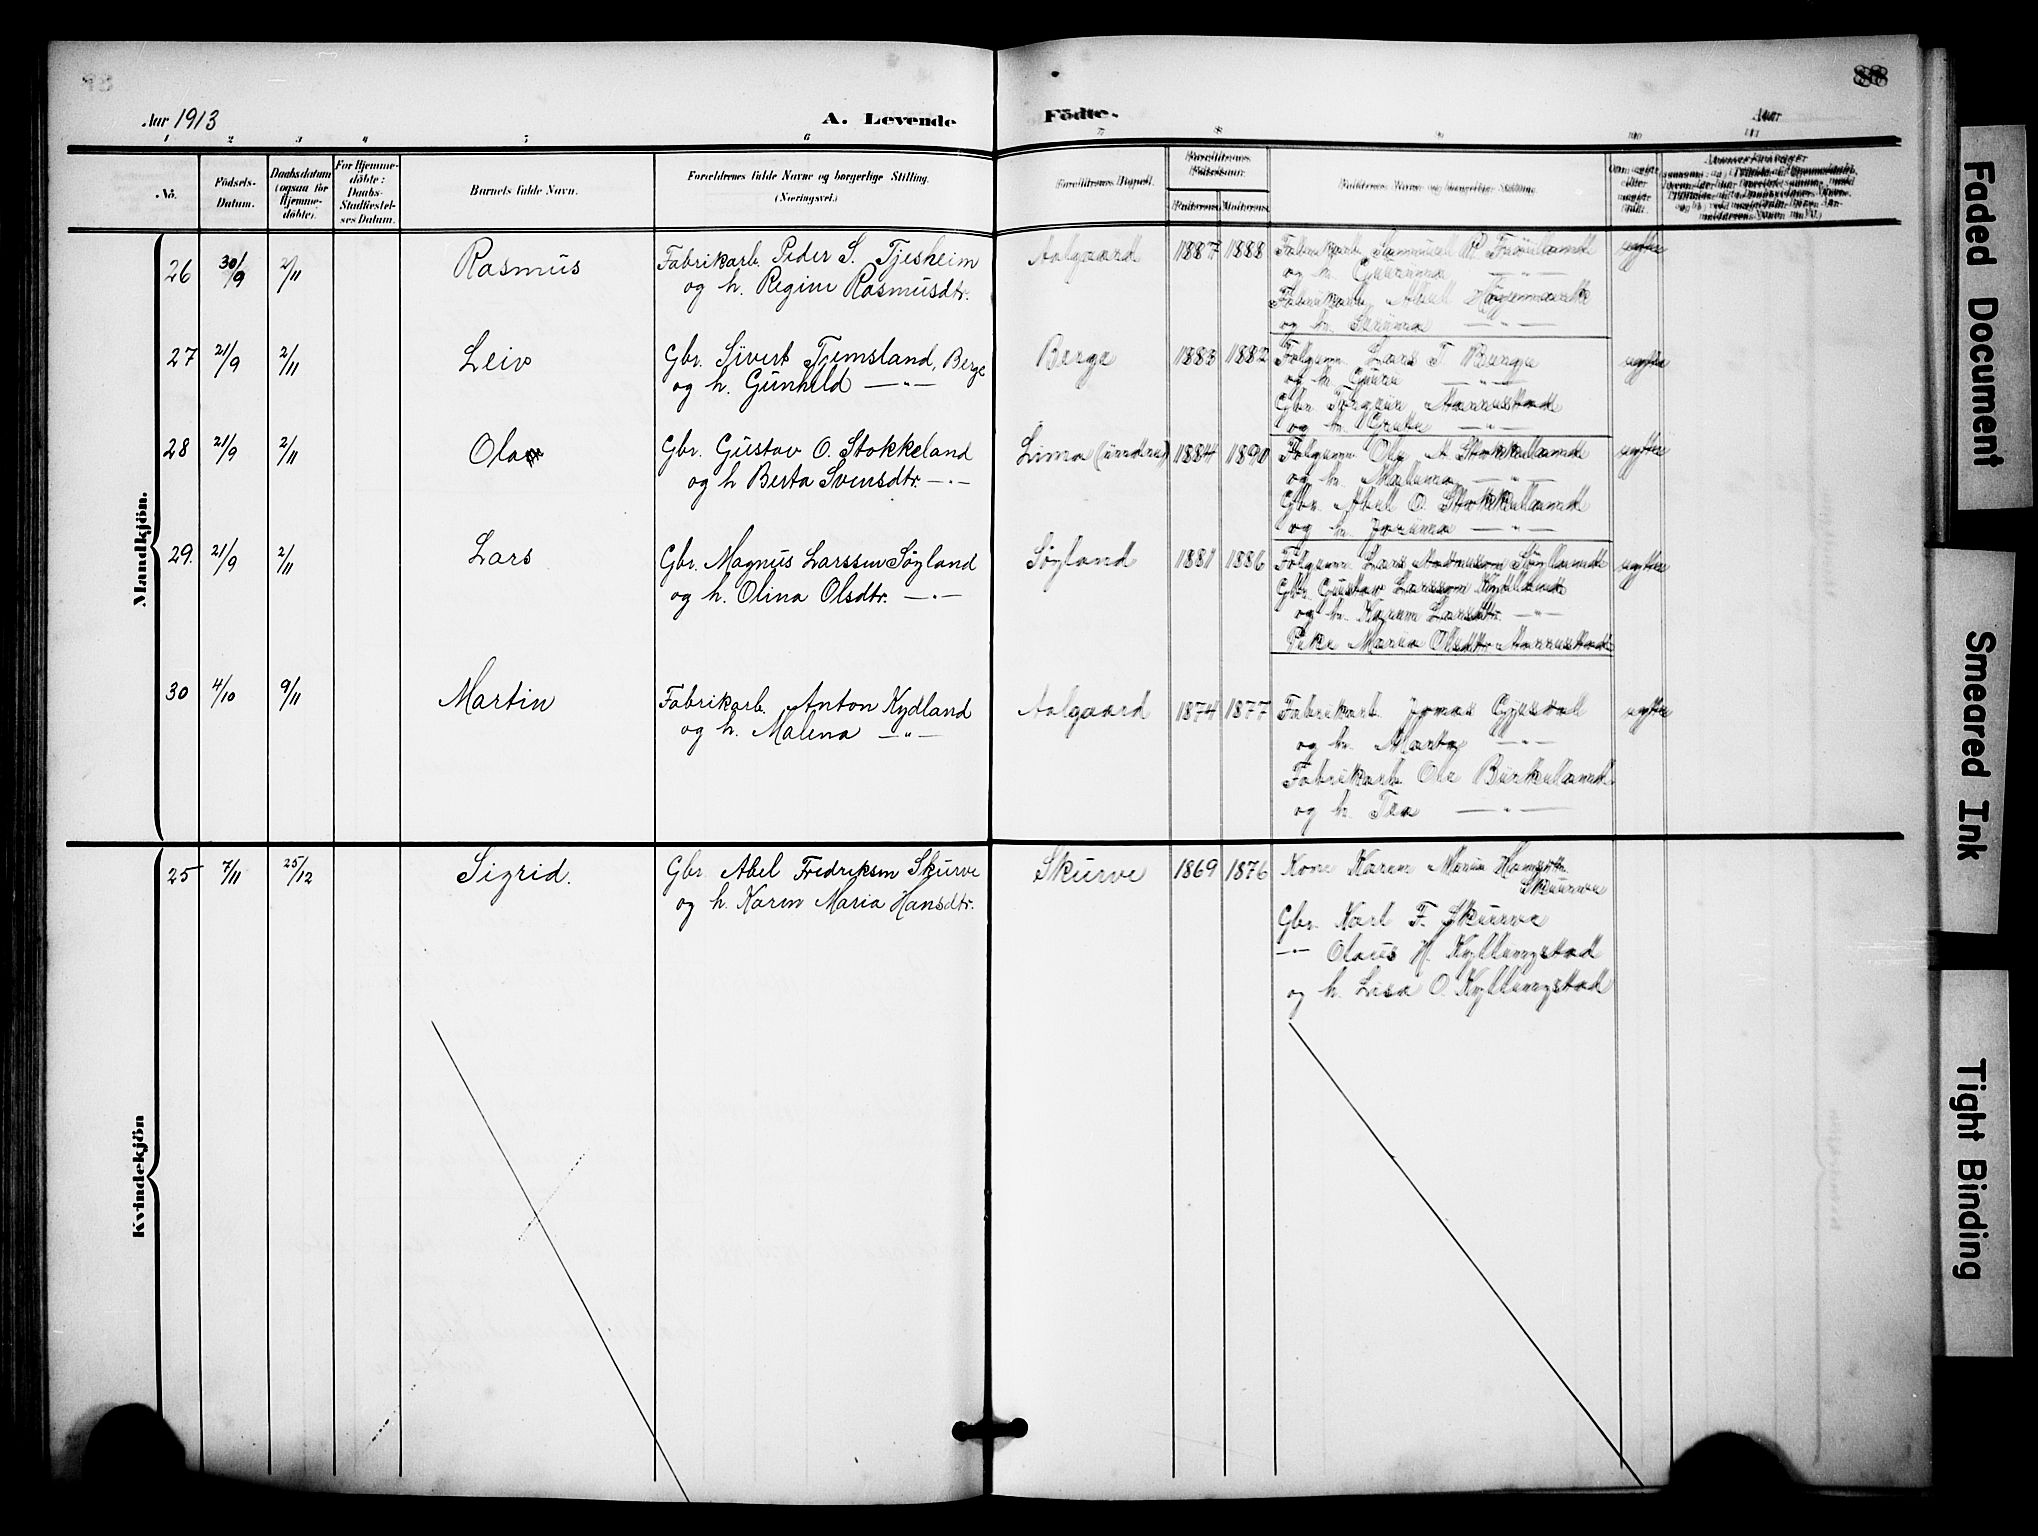 88
Aar 1913
A. Levende
Födte.
Aar
1 2 3 4 5 6 7 8 9 10 11
No.
Födsels-
Datum.
Daabsdatum
(ogsaa for
Hjemme-
döbte).
For Hjemme-
döbte:
Daabs-
Stadfæstel-
ses Datum.
Barnets fulde Navn.
Forældrenes fulde Navne og borgerlige Stilling.
(Næringsvei.)
Forældrenes Bopæl.
Forældrenes
Födselsaar.
Faderens.
Moderens.
Faddernes Navne og borgerlige Stilling.
Om ægte
eller
uægte
født.
Mandkjön.
26 30/9 2/11 Rasmus Fabrikarb. Peder S. Tjesheim Aalgaard 1887 1888 Fabrikarb. Samuel Fröiland ægte
og h. Regine Rasmusdtr. og h. Gurine —"—
Fabrikarb. Abel
og h. —"—
27 21/9 2/11 Leiv Gbr. Sivert Tjemsland, Berge Berge 1883 1882 Folgem. Lars T. Berge ægte
og h. Gunhild —"— og h. Guri —"—
Gbr. Torgeir
og h. Grete —"—
28 21/9 2/11 Olav Gbr. Gustav O. Stokkeland Lima (indre) 1884 1890 Folgem. Ole A. Stokkeland ægte
og h Berta Svensdtr. —"— og h. Malena —"—
Gbr. Abel O. Stokkeland
og h. —"—
29. 21/9 2/11 Lars Gbr. Magnus Larssen Søyland Søyland 1881 1886 Folgem. Lars Søyland ægte
og h. Olina Olsdtr. —"— Gbr. Gustav Larssen Kydland
og h. Karen Larsdtr. —"—
Pike Maria Olsdtr.
30 4/10 9/11 Martin Fabrikarb. Anton Kydland Aalgaard 1874 1877 Fabrikarb. Jonas ægte
og h. Malena —"— og h. Marta —"—
Fabrikarb. Ole Birkeland
og h. Tea —"—
Kvindekjön
25 7/11 25/12 Sigrid. Gbr. Abel Fredriksen Skurve Skurve 1869 1876 Kone Karen Maria Hansdtr.
Skurve
og h. Karen Maria Hansdtr. Gbr. Karl F. Skurve
—"— Olaus H. Kyllingstad
og h. Lisa O. Kyllingstad
Faded Document
Smeared Ink
Tight Binding